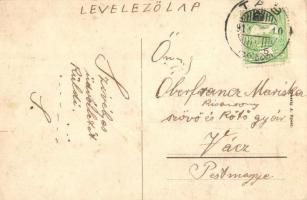 LEVELEZŐLAP
TASS
Szivélyes
üdvözletét
küldi
S.
Oberfrancz Mariska
Kisasszony
szövő és kötő gyár
Vácz
Pestmegye